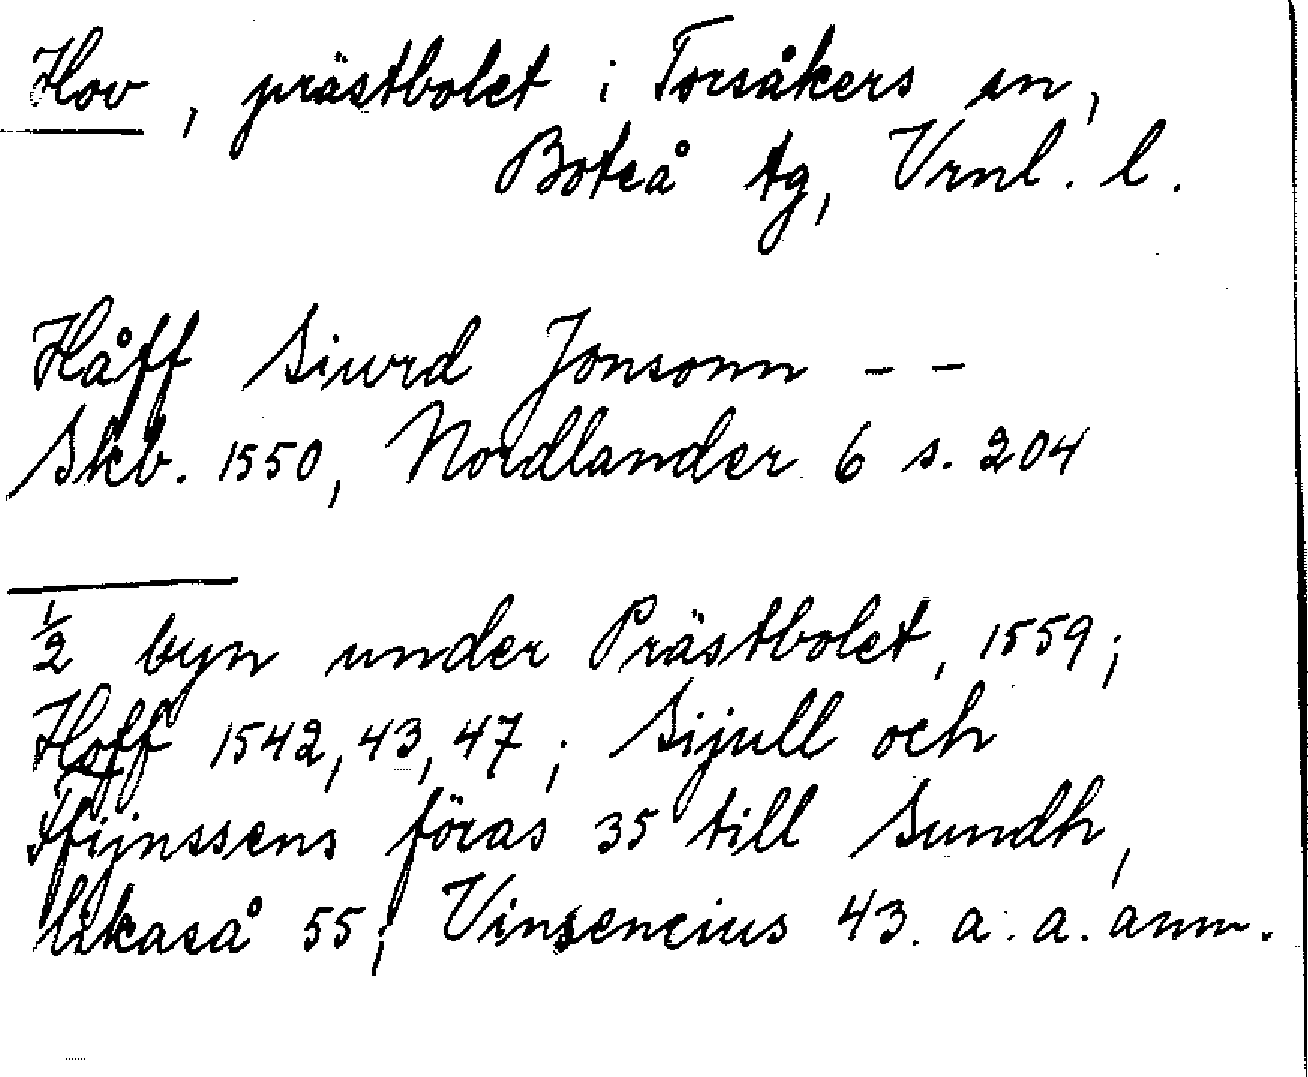 Hov, prästbolet i Torsåkers sn,
Boteå tg, Vrnl. l.
Håff Siurd Jonsonn - -
Skb. 1550, Nordlander 6 s. 204
½ byn under Prästbolet, 1559;
Hoff 1542, 43, 47; Sijull och
föras 35 till Sundh,
likaså 55; Vinsencius 43. a. a. anm.